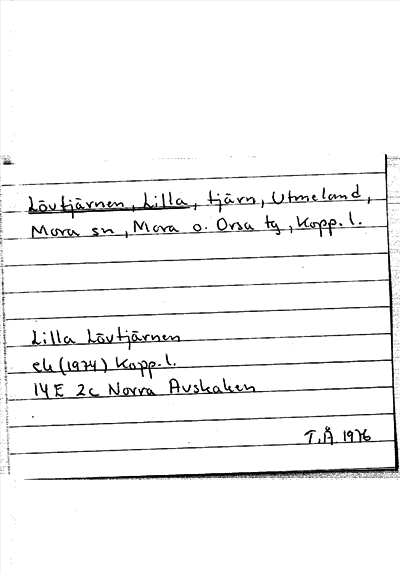 Lövtjärnen, Lilla, tjärn, Utmeland,
Mora sn, Mora o. Orsa tg, Kopp. l.
Lilla Lövtjärnen
ek (1974) Kopp. l.
14E 2c Norra Avskaken
T.Å 1976